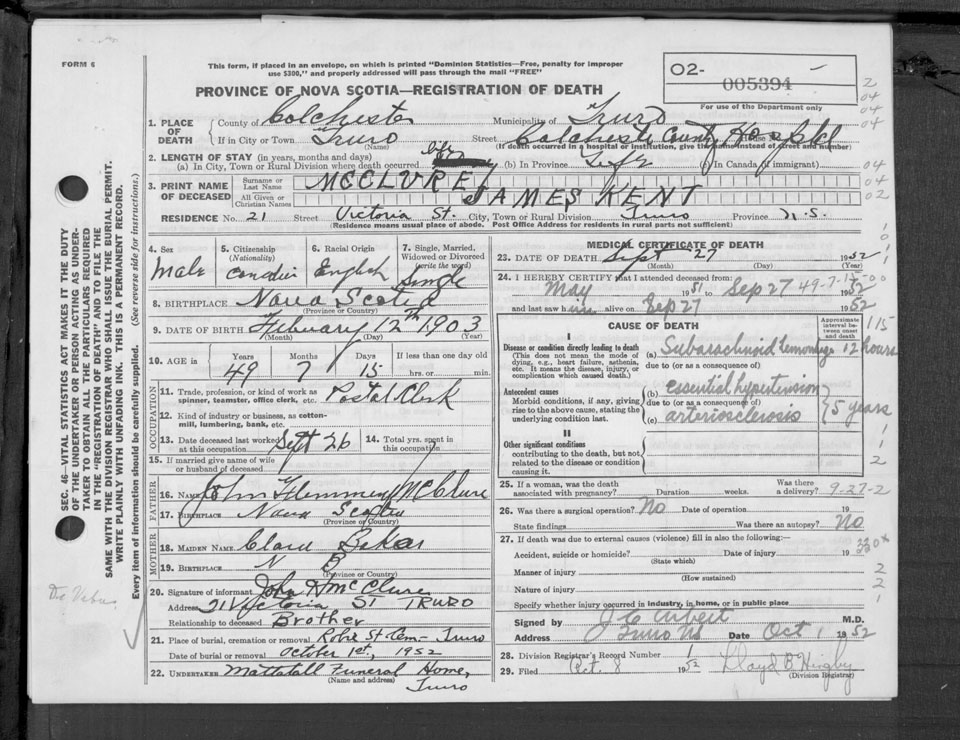 FORM 6
This form, if placed in an envelope, on which is printed "Dominion Statistics—Free, penalty for improper
use $300," and properly addressed will pass through the mail "FREE"
PROVINCE OF NOVA SCOTIA—REGISTRATION OF DEATH
O2- 005394
For use of the Department only
2
04
04
04
04
04
02
SEC. 46—VITAL STATISTICS ACT MAKES IT THE DUTY
OF THE UNDERTAKER OR PERSON ACTING AS UNDER-
TAKER TO OBTAIN ALL THE PARTICULARS REQUIRED
IN THE "REGISTRATION OF DEATH" AND TO FILE THE
SAME WITH THE DIVISION REGISTRAR WHO SHALL ISSUE THE BURIAL PERMIT.
WRITE PLAINLY WITH UNFADING INK. THIS IS A PERMANENT RECORD.
Every item of information should be carefully supplied. (See reverse side for instructions.)
1. PLACE OF DEATH
County of Colchester Municipality of Truro
If in City or Town Truro Street Colchester County Hospital
(Name) (If death occurred in a hospital or institution, give the name instead of street and number)
2. LENGTH OF STAY (in years, months and days)
(a) In City, Town or Rural Division where death occurred life (b) In Province Life (c) In Canada (if immigrant)
3. PRINT NAME OF DECEASED
Surname or Last Name MCCLURE
All Given or Christian Names JAMES KENT
RESIDENCE No. 21 Street Victoria St. City, Town or Rural Division Truro Province N.S.
(Residence means usual place of abode. Post Office Address for residents in rural parts not sufficient)
4. Sex Male
5. Citizenship (Nationality)
6. Racial Origin English
7. Single, Married, Widowed or Divorced (write the word) Single
8. BIRTHPLACE Nova Scotia
(Province or Country)
9. DATE OF BIRTH February 12th 1903
(Month) (Day) (Year)
10. AGE in Years Months Days If less than one day old
49 7 15 hrs. or min.
OCCUPATION
11. Trade, profession, or kind of work as
spinner, teamster, office clerk, etc. Postal Clerk
12. Kind of industry or business, as cotton-
mill, lumbering, bank, etc.
13. Date deceased last worked at this occupation Sept 26
14. Total yrs. spent in this occupation
15. If married give name of wife
or husband of deceased
FATHER
16. NAME John Flemming McClure
17. BIRTHPLACE Nova Scotia
(Province or Country)
MOTHER
18. MAIDEN NAME
19. BIRTHPLACE N S
(Province or Country)
20. Signature of informant John H McClure
Address 21 Victoria St TRURO
Relationship to deceased Brother
21. Place of burial, cremation or removal Robie St. Cem- Truro
Date of burial or removal October 1st, 1952
22. UNDERTAKER Mattatall Funeral Home,
(Name and address) Truro
MEDICAL CERTIFICATE OF DEATH
23. DATE OF DEATH Sept 27 1952
(Month) (Day) (Year)
24. I HEREBY CERTIFY that I attended deceased from:
May 1951 to Sep 27 1952
49-7-15-00
and last saw him alive on Sep 27 1952
CAUSE OF DEATH
Approximate interval between onset and death
I
Disease or condition directly leading to death
(This does not mean the mode of
dying, e.g., heart failure, asthenia,
etc. It means the disease, injury, or
complication which caused death.)
(a) Subarachnoid hemorrhage 12 hours
due to (or as a consequence of)
Antecedent causes
Morbid conditions, if any, giving
rise to the above cause, stating the
underlying condition last.
(b) essential hypertension
due to (or as a consequence of)
(c) arteriosclerosis 5 years
II
Other significant conditions
contributing to the death, but not
related to the disease or condition
causing it
115
25. If a woman, was the death
associated with pregnancy? Duration weeks. Was there a delivery?
9-27-2
26. Was there a surgical operation? No Date of operation 19
State findings Was there an autopsy? No
27. If death was due to external causes (violence) fill in also the following:
Accident, suicide or homicide? Date of injury 19
(State which)
Manner of injury
(How sustained)
Nature of injury
Specify whether injury occurred in industry, in home, or in public place
Signed by M.D.
Address Truro NS Date Oct 1 1952
28. Division Registrar's Record Number 1
29. Filed Oct. 8 1952 Lloyd B
(Division Registrar)